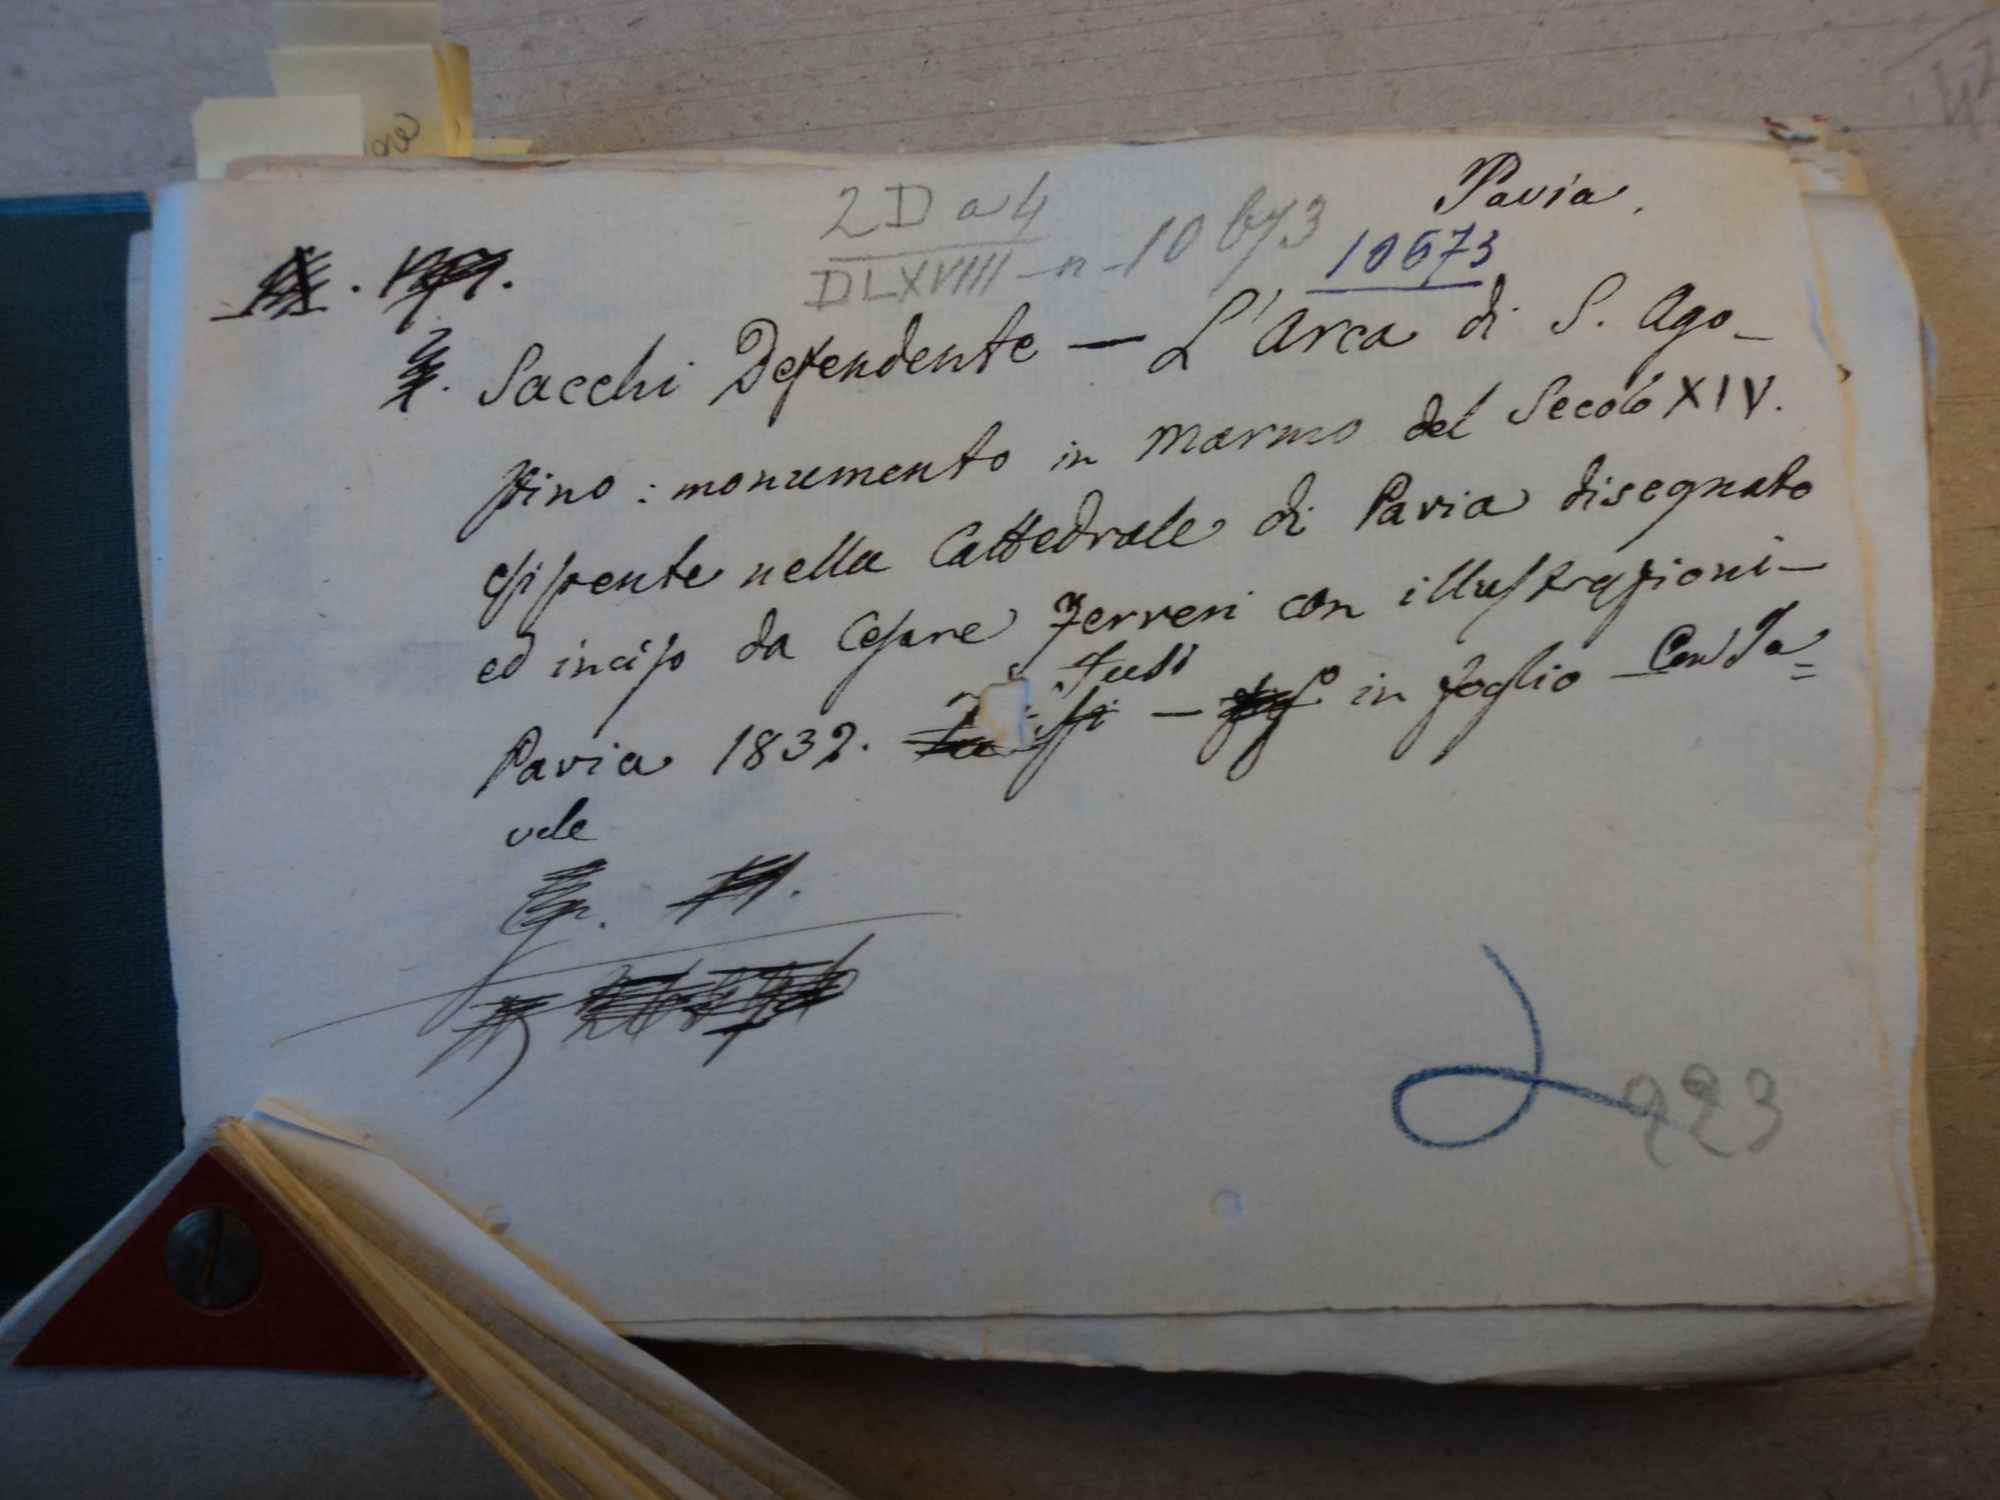 Pavia.
2 D a 4
DLXVIII - n - 10673
10673
Sacchi Defendente — L'Arca di S. Ago-
stino: monumento in marmo del Secolo XIV.
esistente nella Cattedrale di Pavia disegnato
ed inciso da Cesare Ferreri con illustrazioni -
Pavia 1832. Fusi - in foglio Con Ta=
vole
923